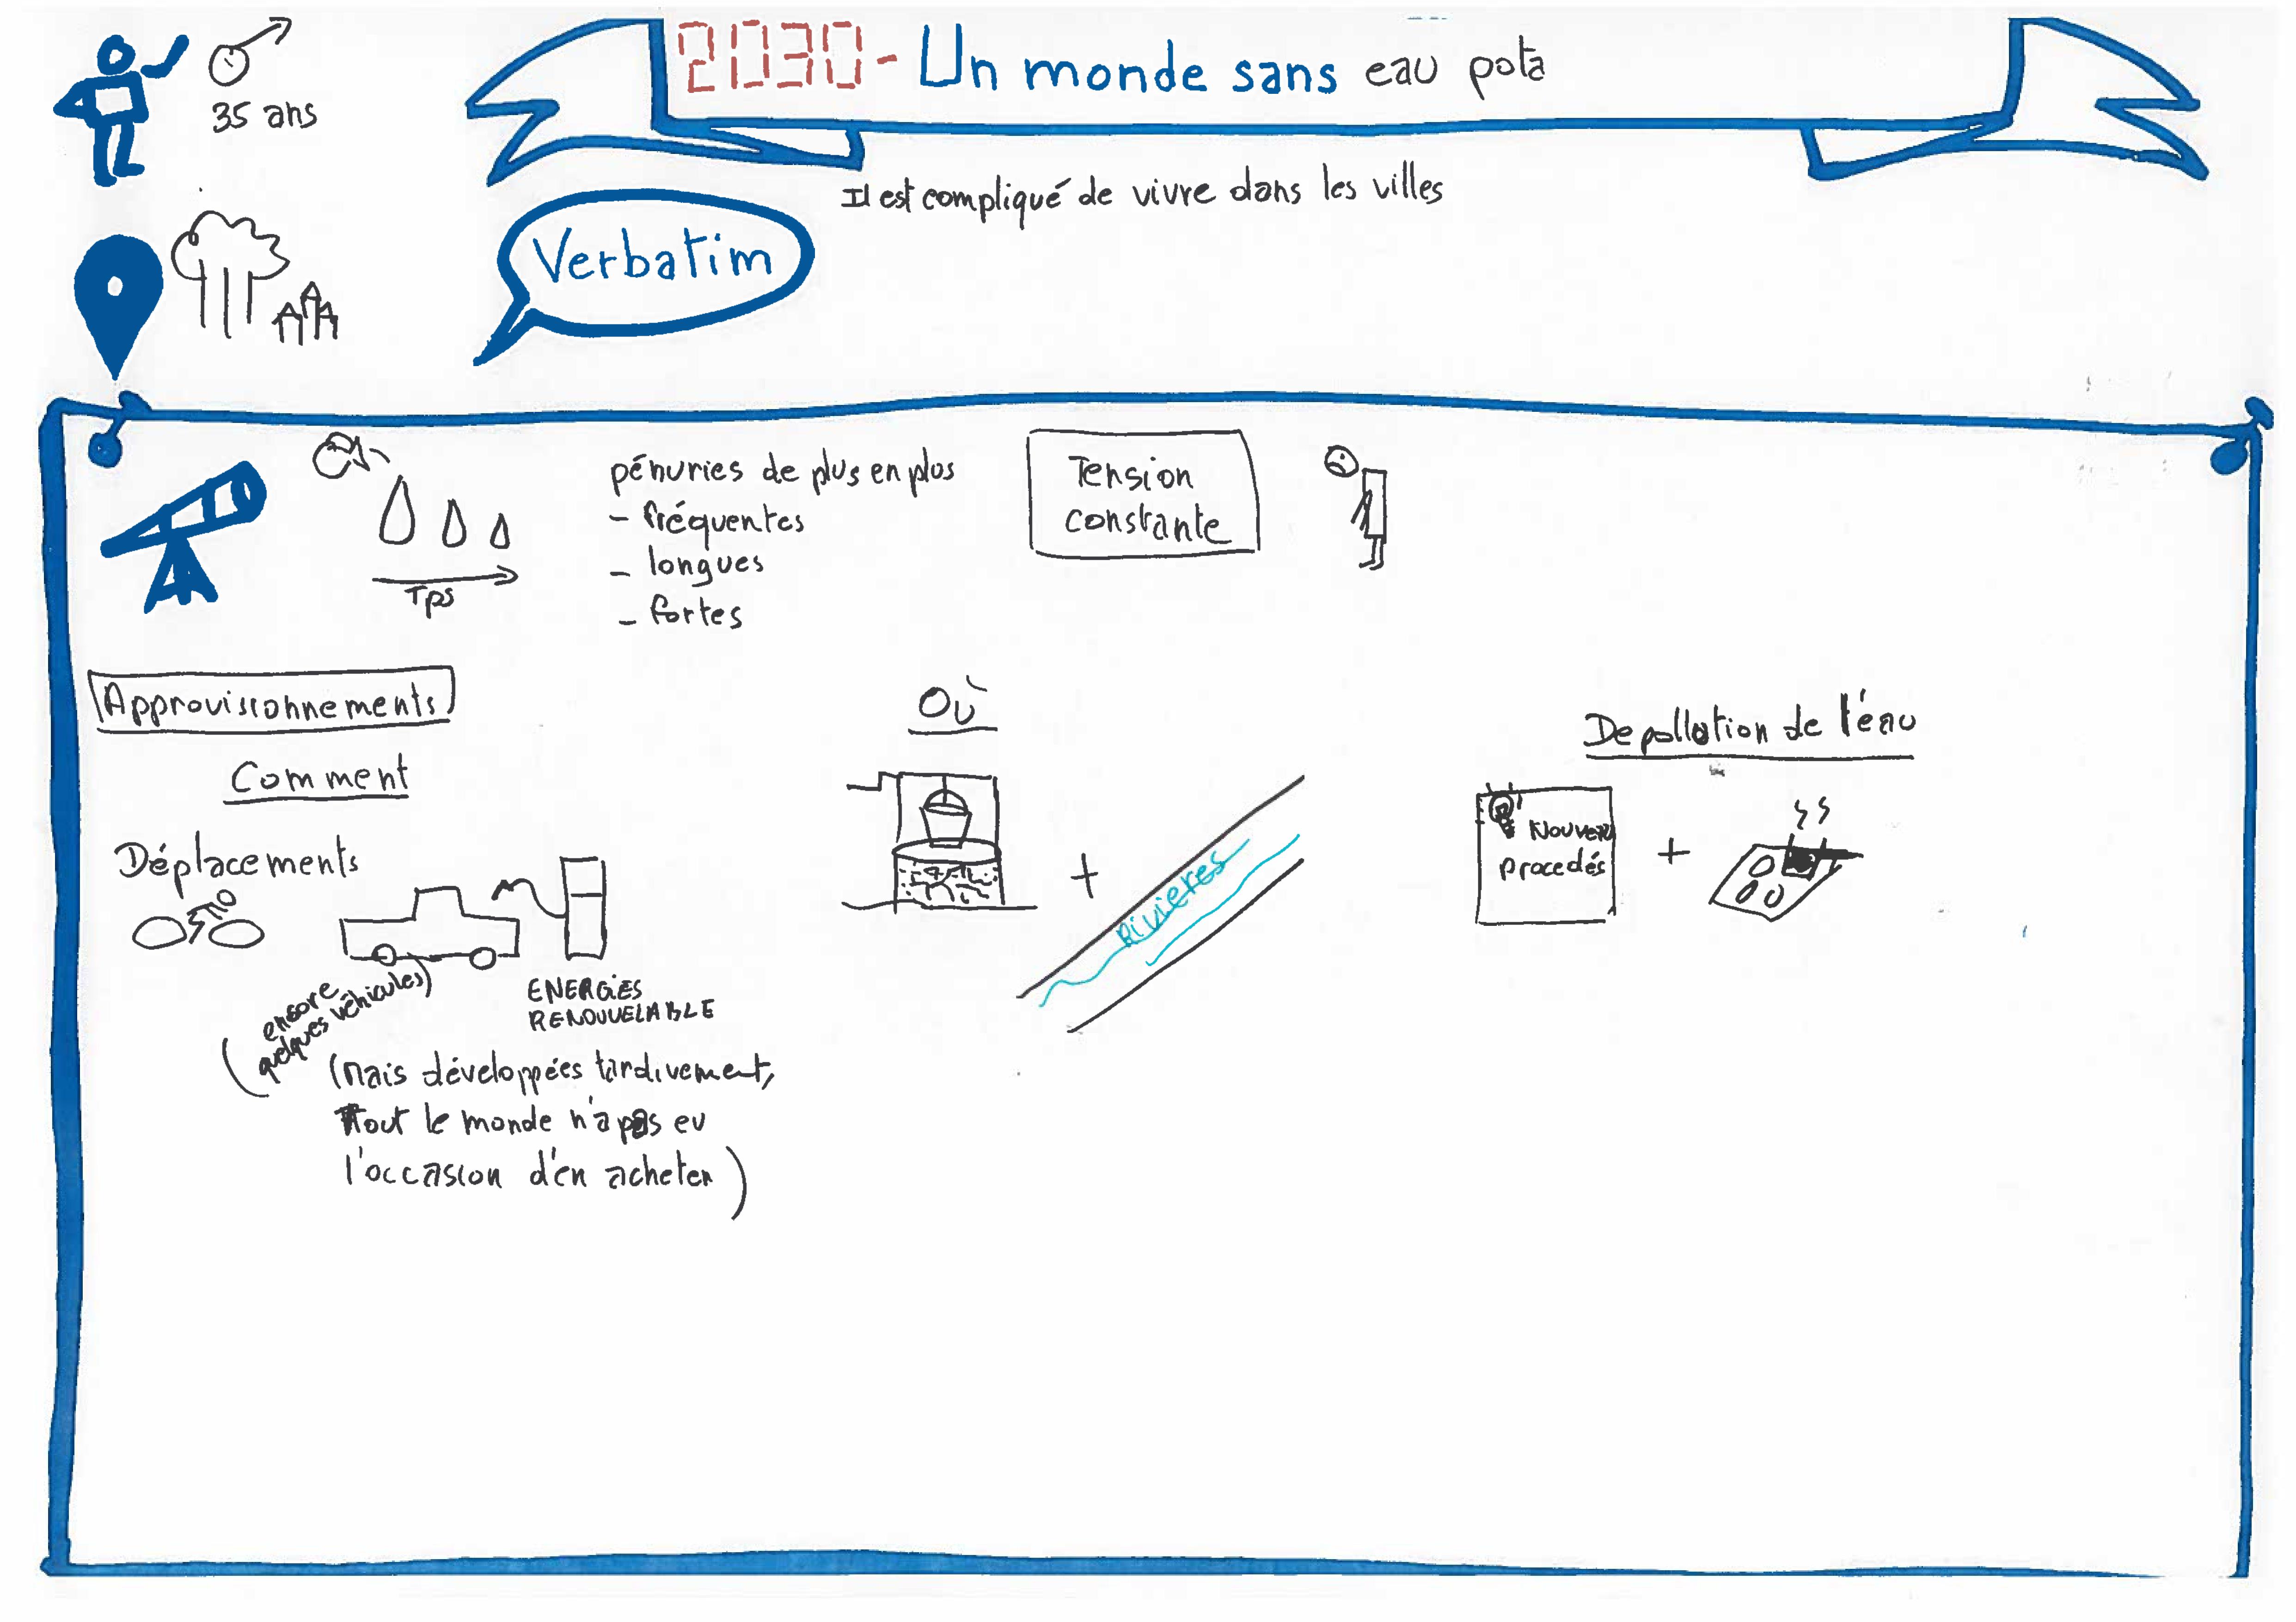 2030 - Un monde sans eau pota
35 ans
Il est compliqué de vivre dans les villes
Verbatim
pénuries de plus en plus
- fréquentes
- longues
- fortes
Tps
Tension
constante
Approvisionnements
Comment
Déplacements
(encore
quelques véhicules)
ENERGIES
RENOUVELABLE
(Mais développées tardivement,
Tout le monde n'a pas eu
l'occasion d'en acheter)
Où
+
Rivieres
Depollution de l'eau
Nouveau
procedés
+